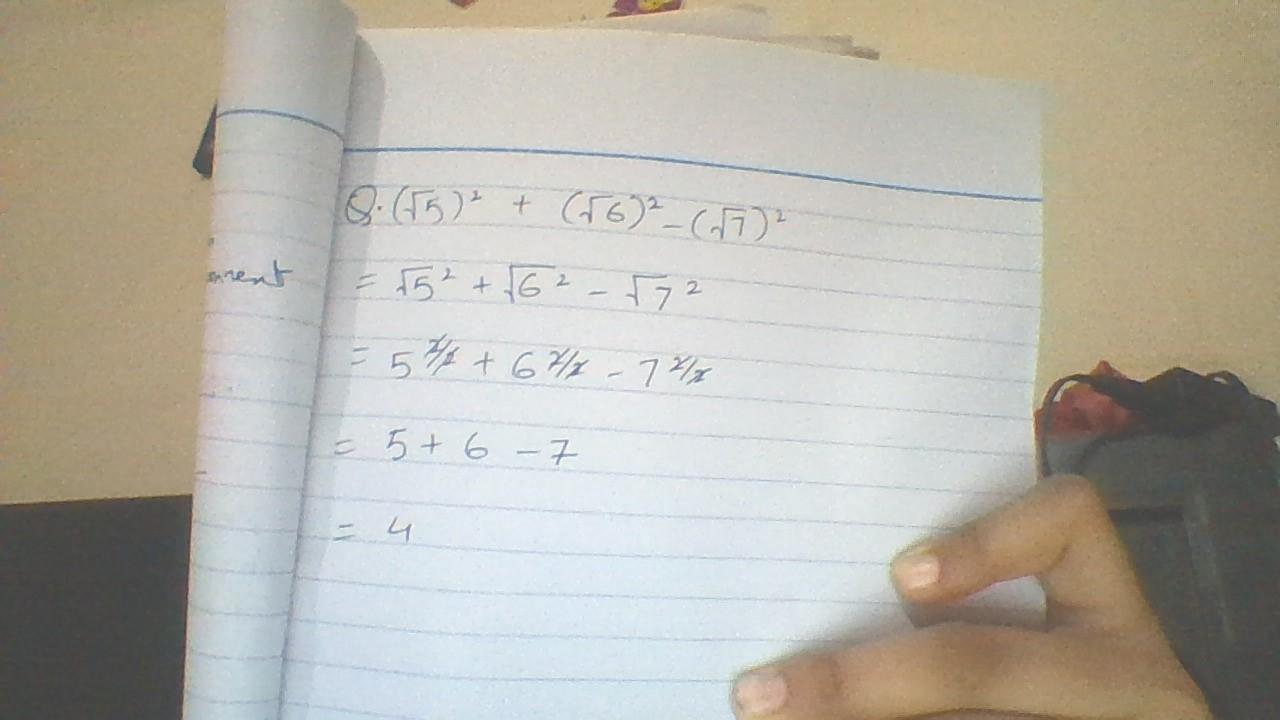 Q. (√5)² + (√6)² - (√7)²
= √5² + √6² - √7²
= 5^2/2 + 6^2/2 - 7^2/2
= 5 + 6 - 7
= 4